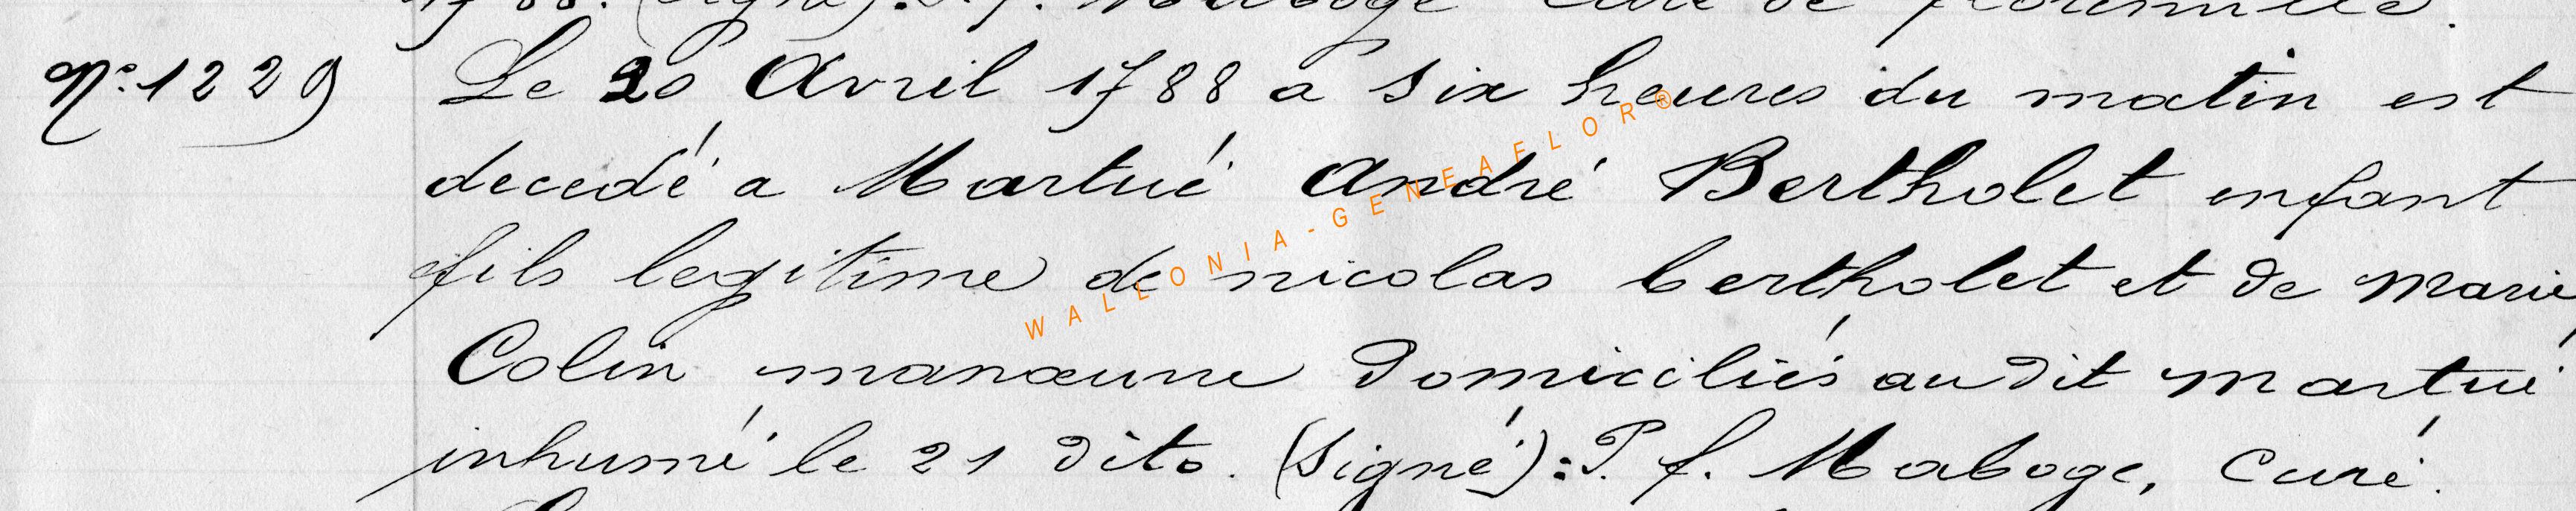 1788. (signé): P. f. Maboge curé de florenville.
N° 1229 Le 20 Avril 1788 a six heures du matin est
decedé a Martué André Bertholet enfant
fils legitime de nicolas bertholet et de Marie
Colin manœuvre domiciliés au dit Martué
inhumé le 21 dito. (signé): P. f. Maboge, curé.
WALLONIA-GENEAFLOR®